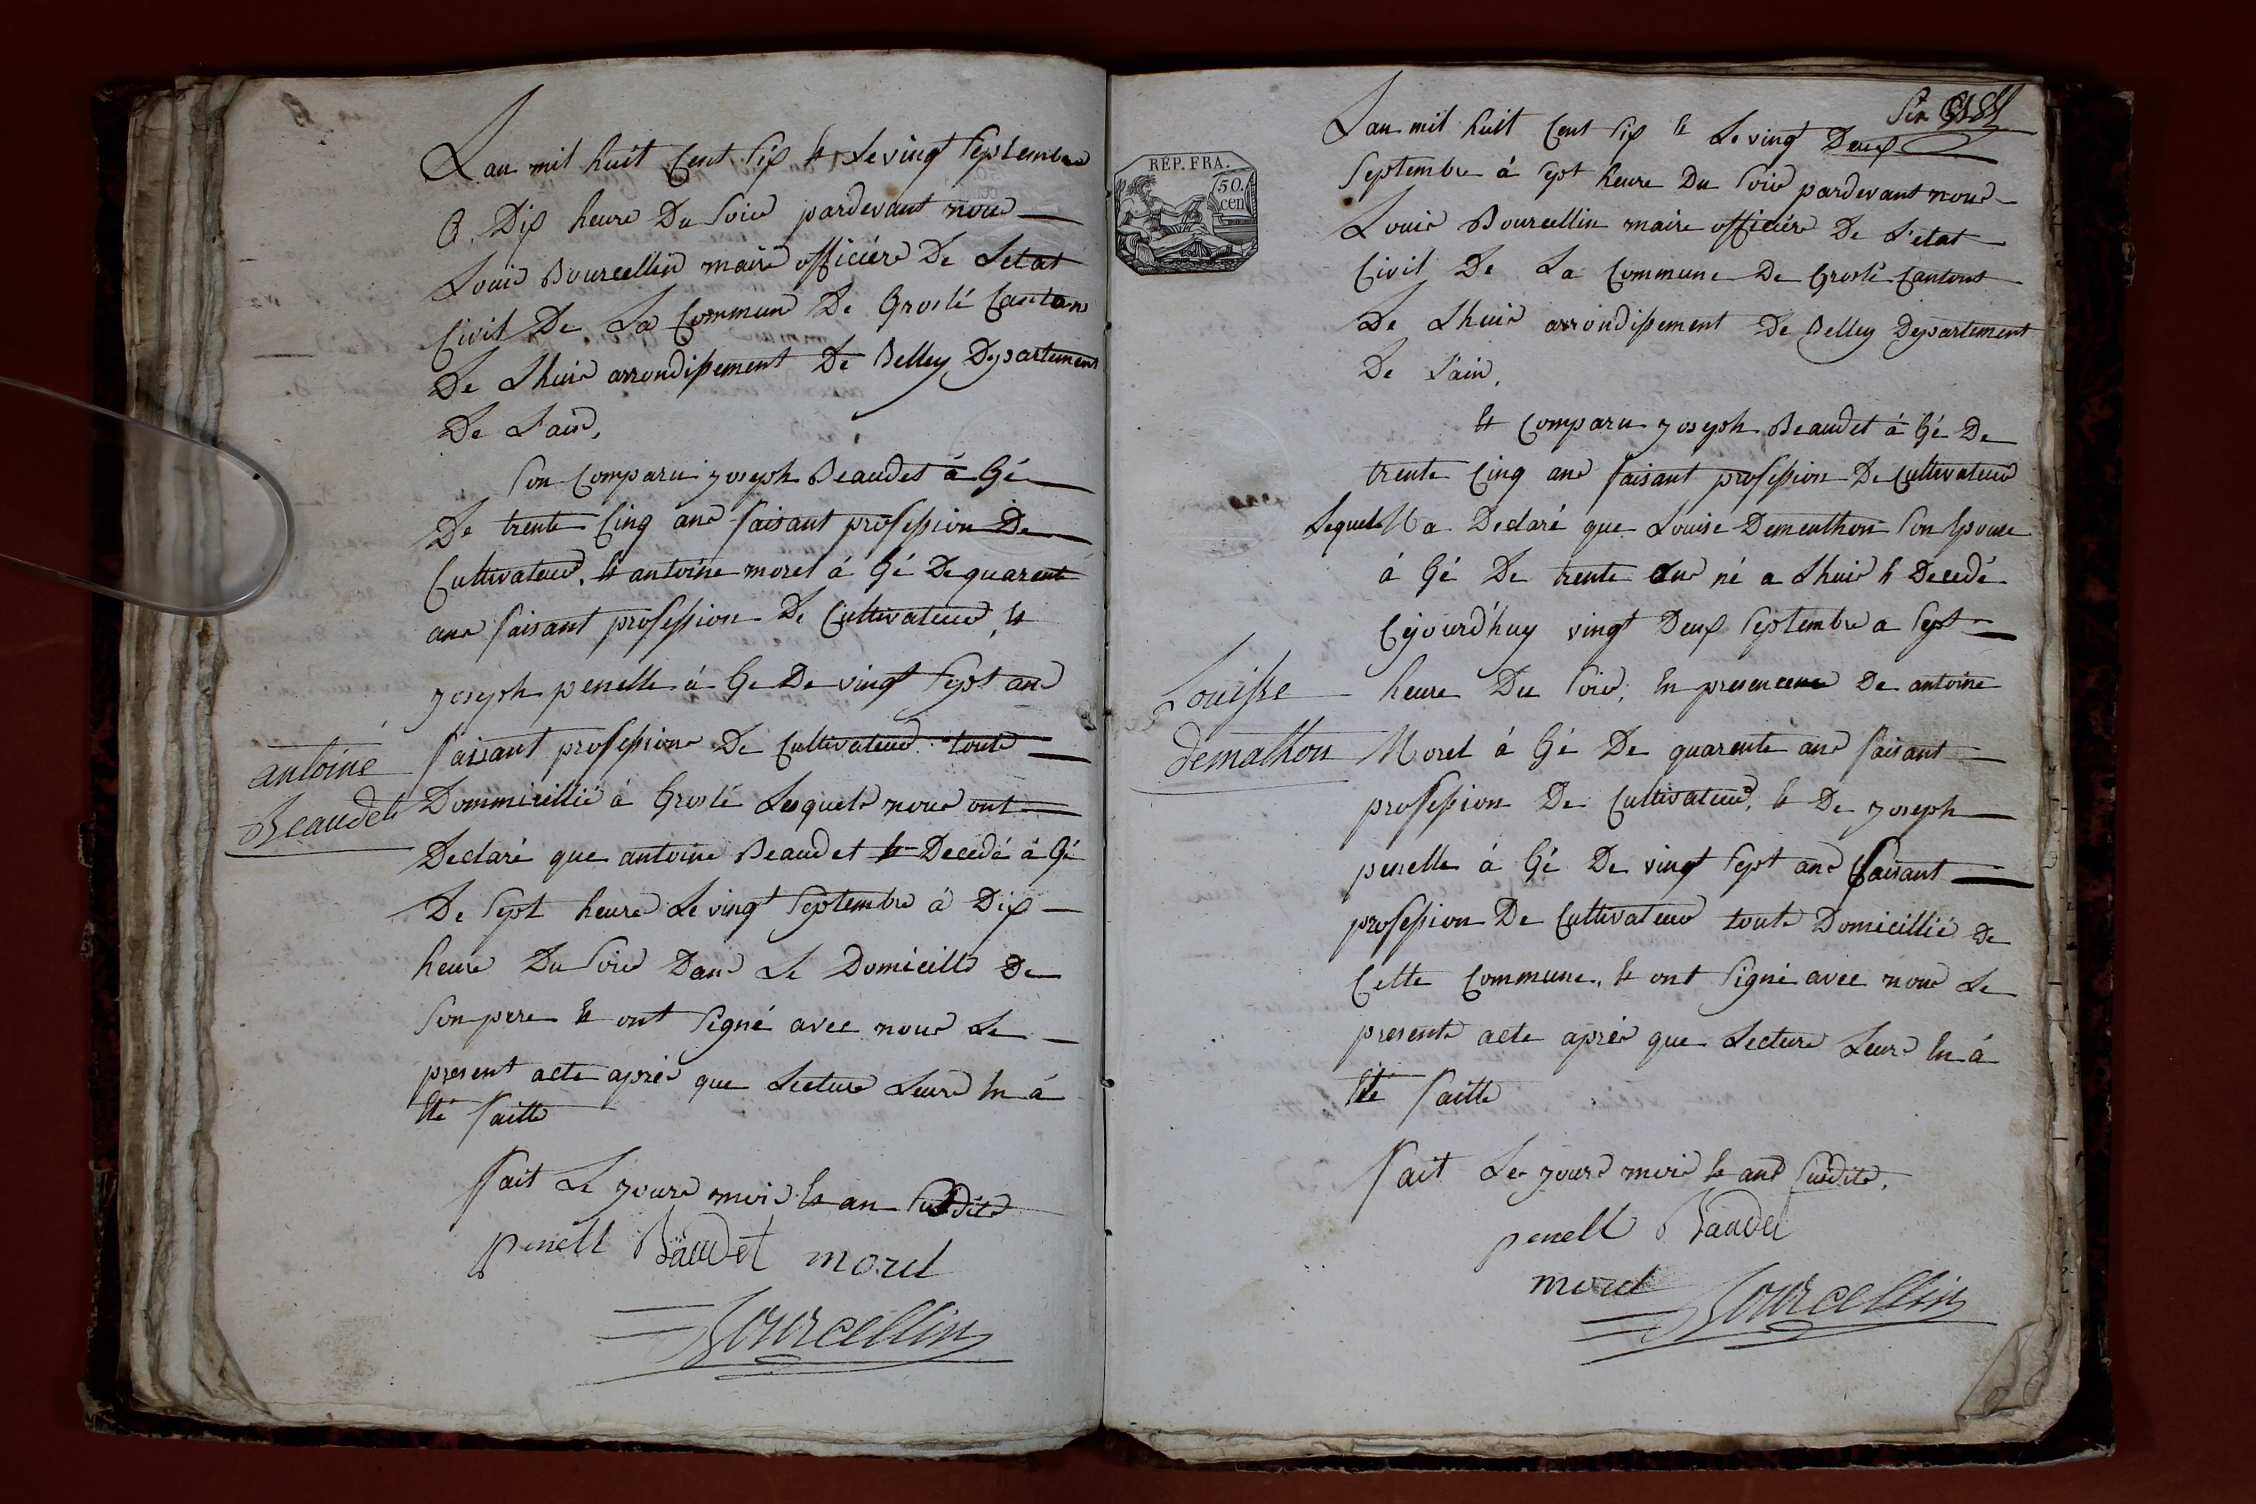 Lan mil huit Cent Six & Le vingt Septembre
a Dix heure Du Soire pardevant nous
Louis Bourcellin maire officiére De Letat
Civil De La Commune De Groslé Canton
De Lhuis arrondissement De Belley Departement
De Lain,
Son Comparu joseph Beaudet á Gé
De trente Cinq ans faisant profession De
Cultivateur, Et antoine morel á Gé De quarente
ans faisant profession De Cultivateur, Et
joseph penelle á Ge De vingt Sept ans
antoine
Beaudet
faisant profession De Cultivateur touts
Dommicillié á Groslé Lesquels nous ont
Declaré que antoine Beaudet Et Decedé á Gé
De Sept heure Le vingt Septembre á Dix
heure Du Soire Dans Le Domicille De
Son pere Et ont Signé avec nous Le
present acte aprés que Lecture Leure En á
Eté faitte
fait Le joure mois Et an Susdite
penell Baudet morel
Bourcellin
Six
Lan mil huit Cent Six & Le vingt Deux
RÉP. FRA.
50.
cen
Septembre á Sept heure Du Soire pardevant nous
Louis Bourcellin maire officiére De L'etat
Civil De La Commune De Groslé Cantont
De Lhuis arrondissement De Belley Departement
De Lain,
Et Comparu joseph Beaudet á Gé De
trente Cinq ans faisant profession De Cultivateur
Lequel Na Declaré que Louise Dementhon Son Epouse
á Gé De trente ans né a Lhuis Et Decedé
Cejourd'huy vingt Deux Septembre a Sept
Louisse
demathon
heure Du Soire, En presence De antoine
Morel á Gé De quarente ans faisant
profession De Cultivateur, Et De joseph
penelle á Gé De vingt Sept ans faisant
profession De Cultivateur touts Domicillié De
Cette Commune, Et ont Signé avec nous Le
presente acte aprés que Lecture Leure En á
Eté faitte
fait Le joure mois Et ans Susdite,
penell Baudet
morel Bourcellin